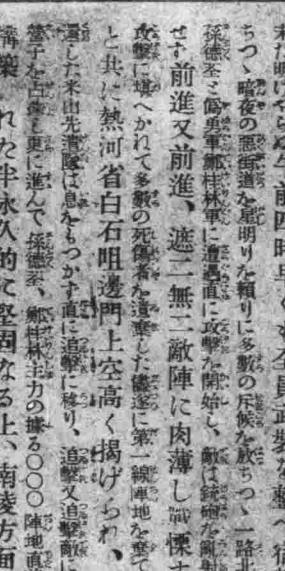 前四時早くも全員武装を整へ
ちつゝ暗夜の悪街道を星明りを頼りに多數の斥候を放ちつゝ一路北
孫德荃ミ偽勇軍鄭桂林軍に遭遇直に攻撃を開始し、敵は銃砲を亂射
せず前進又前進、遮二無二敵陣に肉薄し
攻撃に堪へかねて多數の死傷者を遺棄した儘遂に第一線陣地を棄て
と共に熱河省白石咀邊門上空高く揚げられ、
した米山先遣隊は息をもつかず直に追撃に移り、追撃又追撃敵に
營子を占領し更に進んで孫德荃、鄭桂林主力の據る〇〇〇陣地直
構築された半永久的な堅固なる上、南凌方面